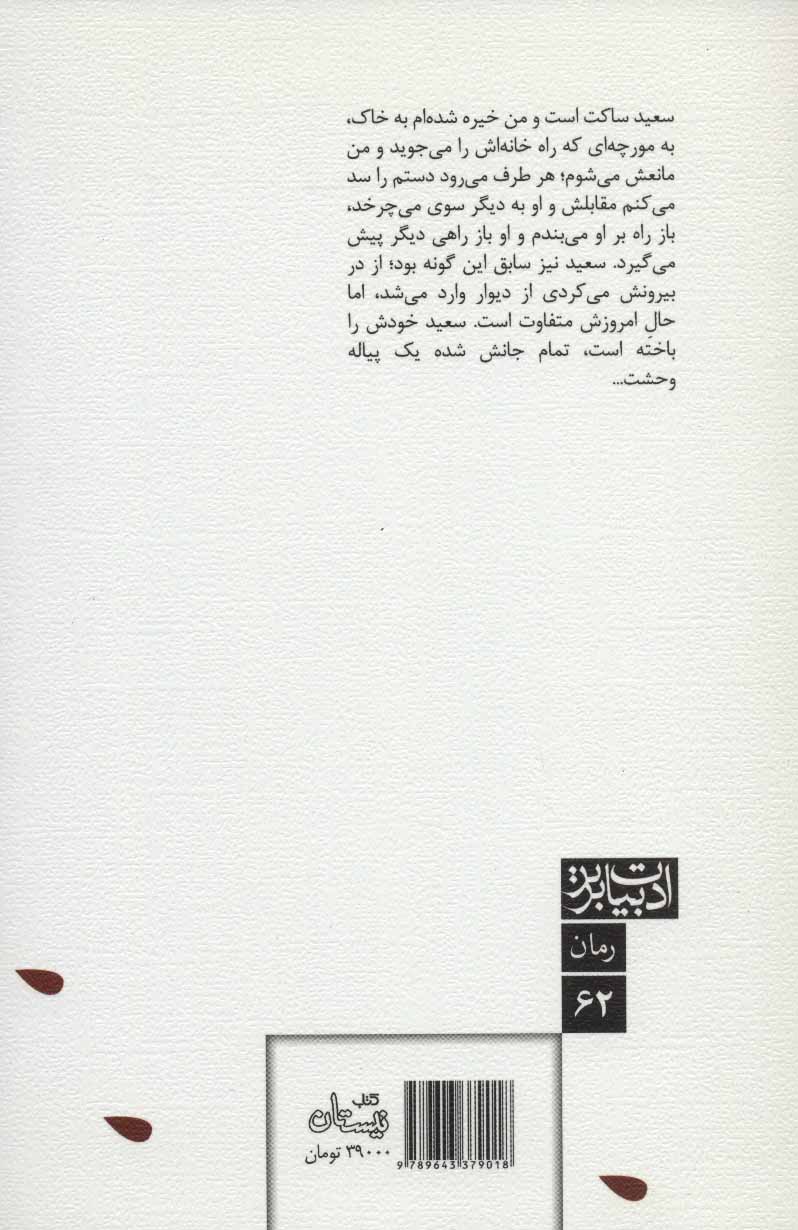 سعید ساکت است و من خیره شده‌ام به خاک،
به مورچه‌ای که راه خانه‌اش را می‌جوید و من
مانعش می‌شوم؛ هر طرف می‌رود دستم را سد
می‌کنم مقابلش و او به دیگر سوی می‌چرخد،
باز راه بر او می‌بندم و او باز راهی دیگر پیش
می‌گیرد. سعید نیز سابق این گونه بود؛ از در
بیرونش می‌کردی از دیوار وارد می‌شد، اما
حالِ امروزش متفاوت است. سعید خودش را
باخته است، تمام جانش شده یک پیاله
وحشت...
ادبیات برتر
رمان
۶۲
کتاب
نیستان
۳۹۰۰۰ تومان
9 789643 379018